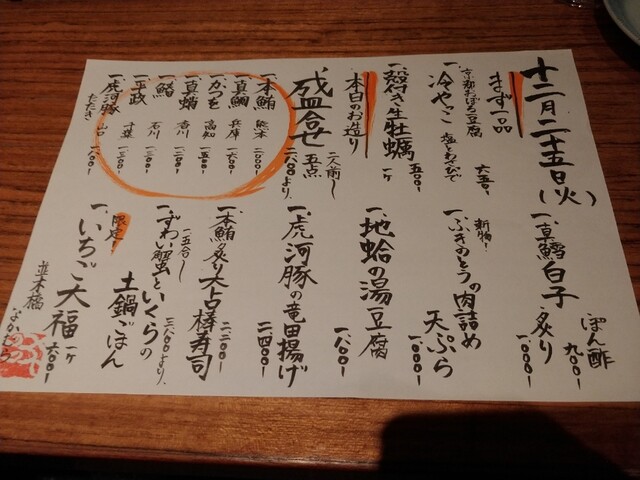 十二月二十五日(火)
まず一品
一、冷やっこ
京都まぼろし豆腐 塩とわさびで 六五〇-
一、殻付き生牡蠣 一ヶ 五〇〇-
本日のお造り
盛合せ 二人前〜 五点 二八〇〇-より
一、本鮪 熊本 二〇〇〇-
一、真鯛 兵庫 一六〇〇-
一、かつを 高知 一五〇〇-
一、真蛸 香川 一三〇〇-
一、鰆 石川 一三〇〇-
一、平政 千葉 一三〇〇-
一、虎河豚 たたき 山口 一八〇〇-
一、真鱈白子 ぽん酢 九〇〇-
炙り 一、〇〇〇-
新物!
一、ふきのとうの肉詰め
天ぷら 一、〇〇〇-
一、地蛤の湯豆腐 一、八〇〇-
一、虎河豚の竜田揚げ 二、四〇〇-
一、本鮪炙り太占棒寿司 二、二〇〇-
一、ずわい蟹といくらの
土鍋ごはん
一五合〜 三八〇〇-より
限定
一、いちご大福 一ヶ 六〇〇-
並木橋 なかむら